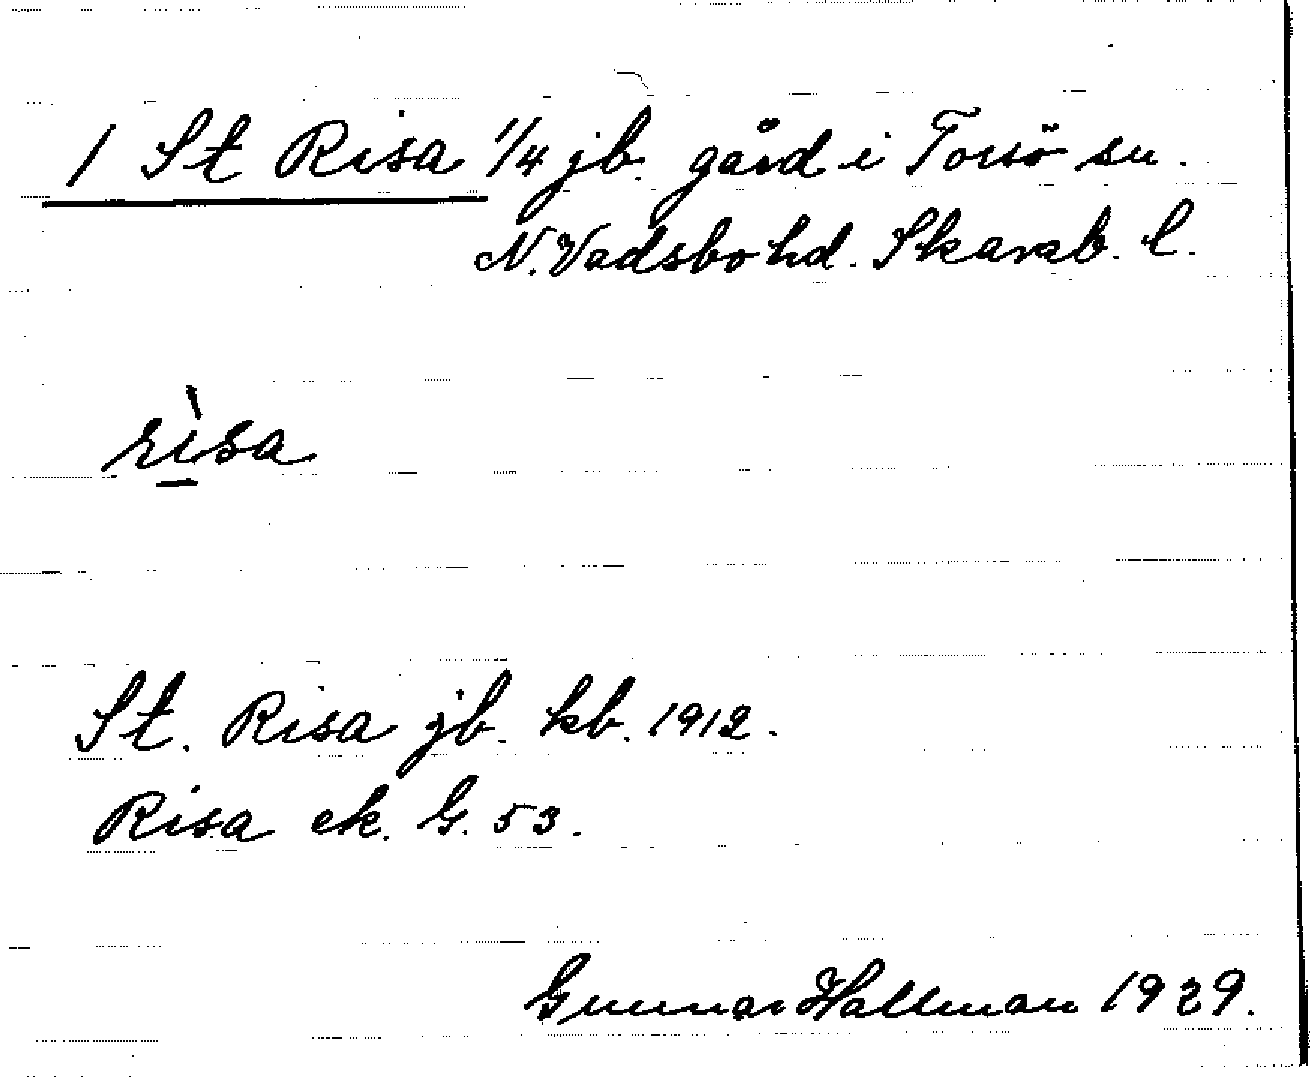 1 St Risa 1/4 jb. gård i Torsö sn.
N. Vadsbo hd. Skarab. l.
rìsa
St. Risa jb. kb. 1912.
Risa ek. G. 53.
Gunnar Hallman 1929.